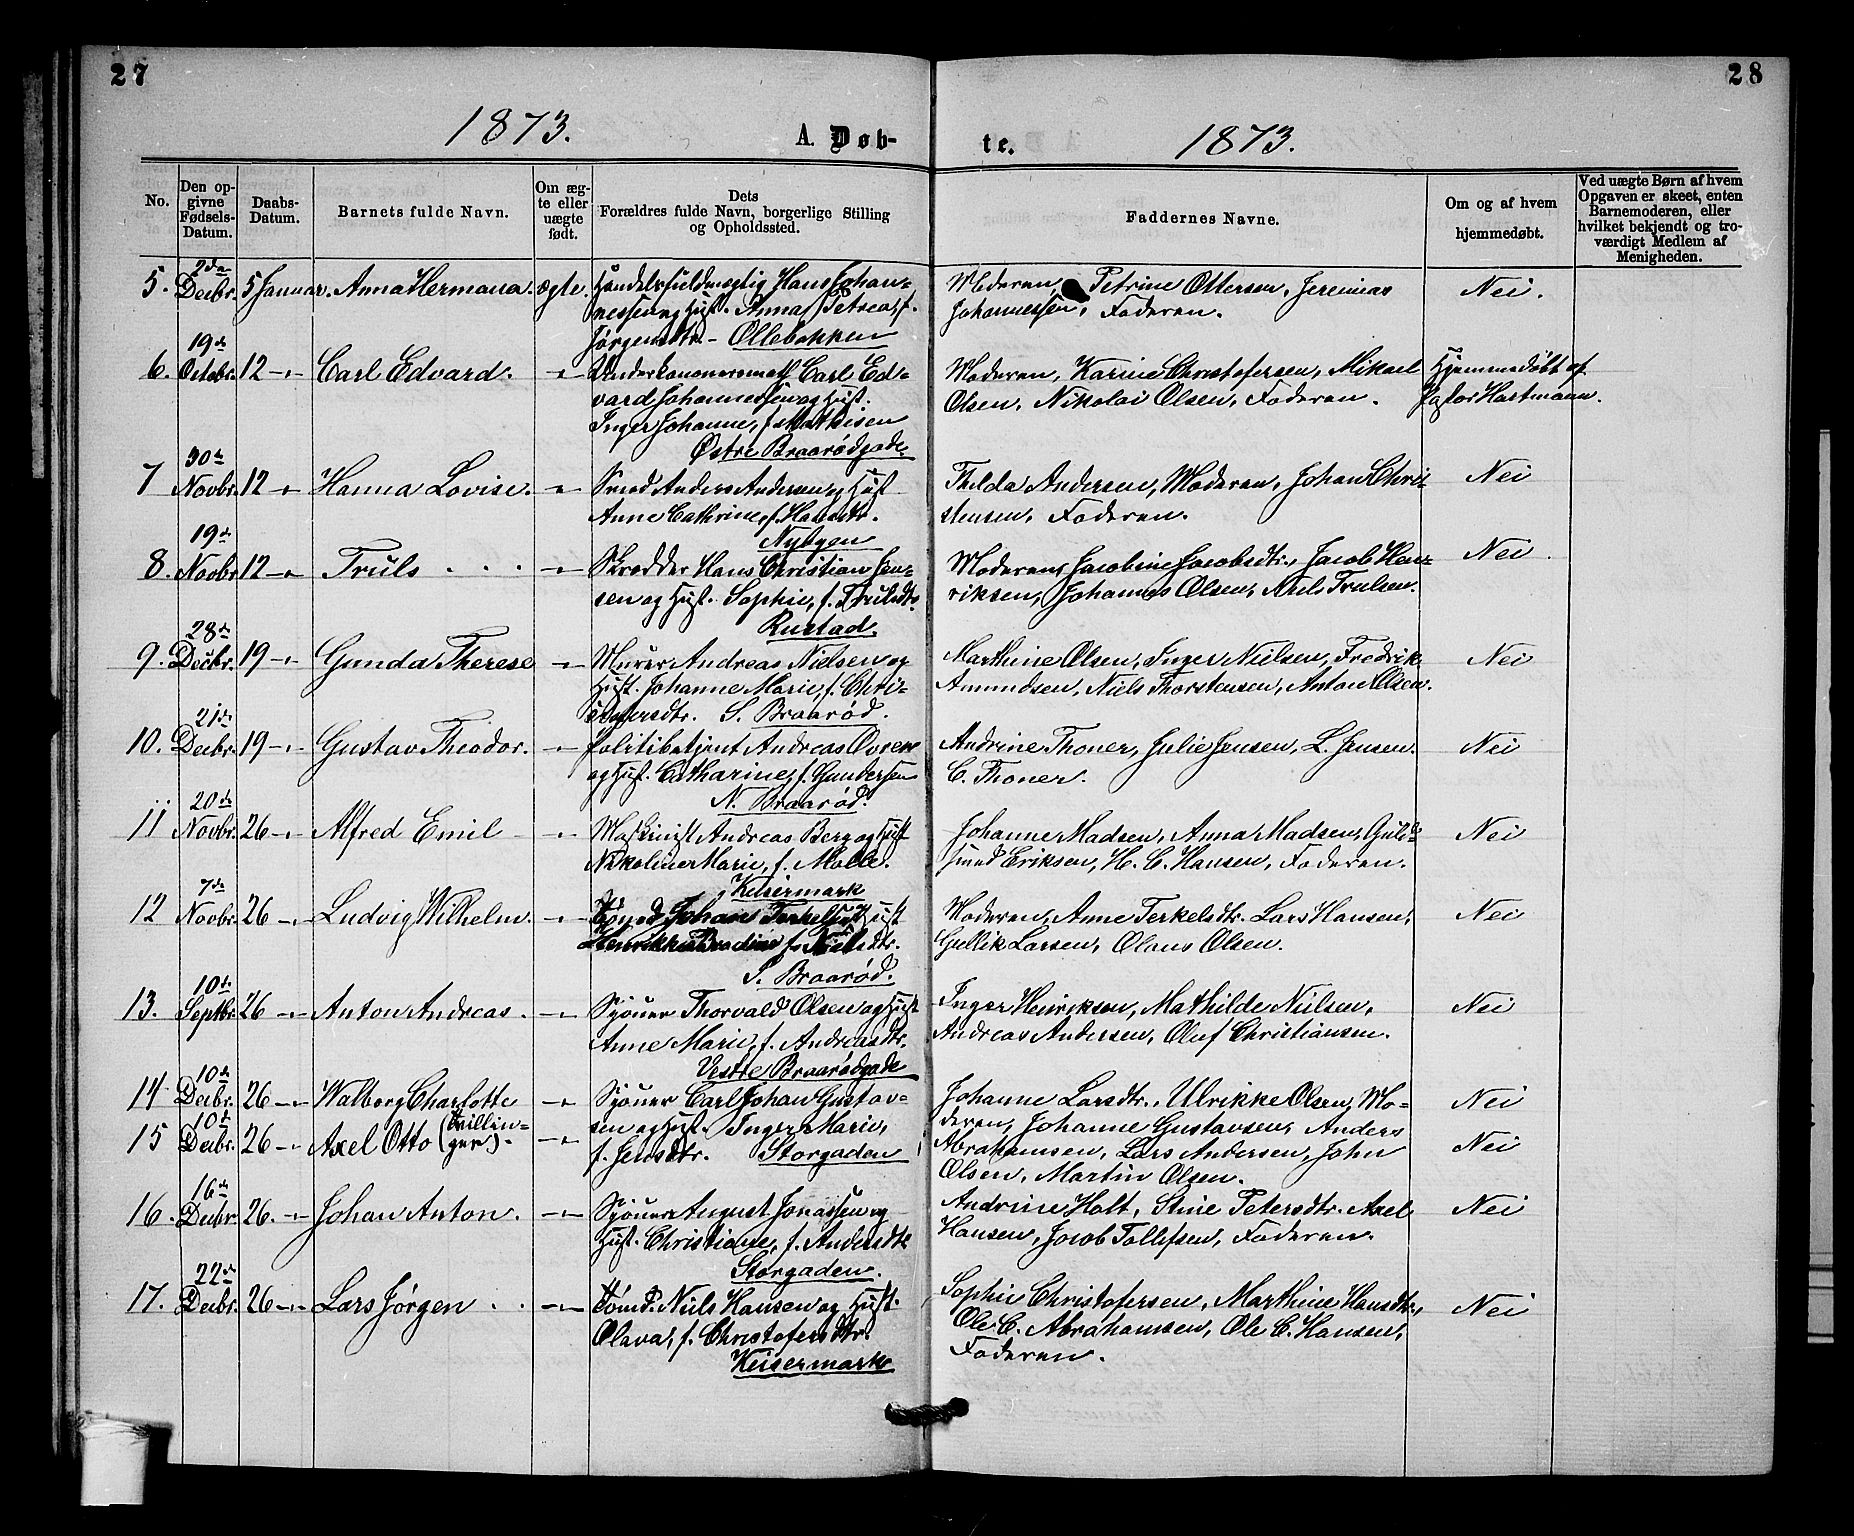 27
28
1873.
A. Døb-
te.
1873.
No.
Den op-
givne
Fødsels-
Datum.
Daabs-
Datum.
Barnets fulde Navn.
Om æg-
te eller
uægte
født.
Dets
Forældres fulde Navn, borgerlige Stilling
og Opholdssted.
Faddernes Navne.
Om og af hvem
hjemmedøbt.
Ved uægte Børn af hvem
Opgaven er skeet, enten
Barnemoderen, eller
hvilket bekjendt og tro-
værdigt Medlem af
Menigheden.
2de
5. Decbr. 5 Januar. Anna Hermana. ægte. Handelsfuldmægtig Hans Johan-
nessen og Hust. Anna Petrea, f.
Jørgensdtr. - Ollebakken
Moderen, Petrine Ottersen, Jeremias
Johannessen, Faderen.
Nei.
19de
6. Octobr. 12 -"- Carl Edvard. -"- Underkanonermat Carl Ed-
vard Johannessen og Hust.
Inger Johanne, f. Mathisen
Østre Braarødgade.
Moderen, Karine Christofersen, Mikael
Olsen, Nikolai Olsen, Faderen.
Hjemmedøbt af
Pastor Hartmann.
30te
7 Novbr. 12 -"- Hanna Lovise. -"- Smed Anders Andersen og Hust
Anne Cathrine, f. Hansdtr.
Nybyen
Thilda Andersen, Moderen, Johan Chri-
stensen, Faderen.
Nei
19de
8. Novbr 12 -"- Truls . . . -"- Skrædder Hans Christian Jen-
sen og Hust. Sophie, f. Trulsdtr.
Rustad.
Moderen, Jacobine Jacobsdtr., Jacob Hen-
riksen, Johannes Olsen, Axels Trulsen.
Nei.
28de
9. Decbr. 19 -"- Gunda Therese -"- Murer Andreas Nielsen og
Hust. Johanne Marie, f. Chri-
stofersdtr. S. Braarød.
Marthine Olsen, Inger Nielsen, Fredrik
Amundsen, Niels Thorstensen, Anton Olsen.
Nei
21de
10. Decbr. 19 -"- Gustav Theodor. -"- Politibetjent Andreas Evsene
og Hust. Catharine, f. Gundersen
N. Braarød.
Andrine Thoner, Julie Jensen, L. Jensen.
C. Thoner.
Nei
20de
11 Novbr. 26 -"- Alfred Emil -"- Maskinist Andreas Berg og Hust
Nikoline Marie, f. Malle.
Keisermark
Johanne Madsen, Anna Madsen, Guld-
smed Eriksen, H. C. Hansen, Faderen.
Nei
7de
12 Novbr. 26 -"- Ludvig Wilhelm. -"- Johans Terkelsen og Hust
f. Nielsdtr.
S. Braarød.
Moderen, Anne Terkelsdtr. Lars Hansen,
Gullik Larsen, Olaus Olsen.
Nei
10de
13. Septbr. 26 -"- Anton Andreas. -"- Sjøuer Thorvald Olsen og Hust
Anne Marie, f. Andreasdtr.
Vestre Braarødgade
Inger Henriksen, Mathilde Nilsen,
Andreas Andersen, Oluf Christiansen.
Nei
10de
14 Decbr. 26 -"- Walborg Charlotte -"- Sjøuer Carl Johan Gustav-
sen og Hust. Inger Marie,
f. Jensdtr. Storgaden
Johanne Larsdtr., Ulrikke Olsen, Mo-
deren, Johanne Gustavsen, Anders
Abrahamsen, Lars Andersen, John
Olsen, Martin Olsen.
Nei
10de
15 Decbr. 26 -"- Axel Otto (Tvillin-
ger). -"-
Nei
16de
16. Decbr. 26. -"- Johan Anton. -"- Sjøuer August Jonassen og
Hust. Christiane, f. Andersdtr
Storgaden.
Andrine Holt, Stine Petersdtr. Axel
Hansen, Jacob Tollefsen, Faderen.
Nei
22de
17. Decbr. 26 -"- Lars Jørgen . . -"- Tømd. Niels Hansen og Hust.
Olava, f. Christofersdtr.
Keisermark
Sophie Christofersen, Marthine Hansdtr.,
Ole C. Abrahamsen, Ole C. Hansen,
Faderen.
Nei